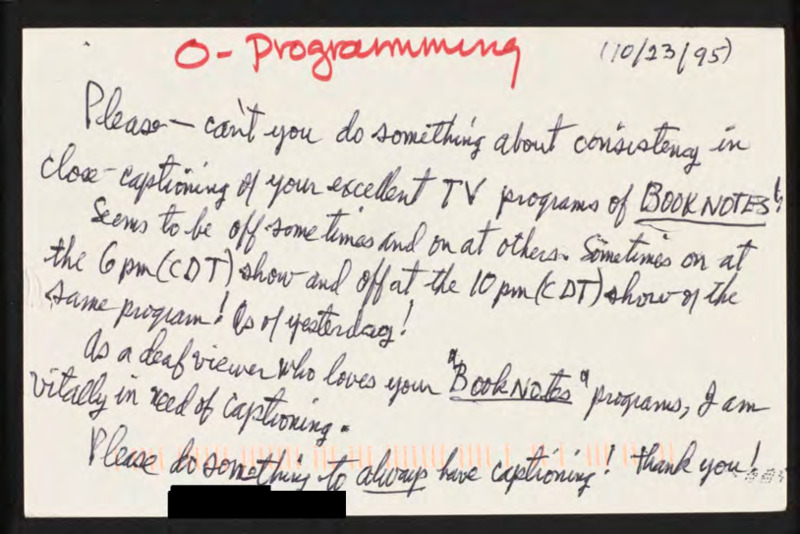 O- Programming
(10/23/95)
Please — can't you do something about consistency in
close-captioning of your excellent TV programs of BOOKNOTES!
Seems to be off sometimes and on at others. Sometimes on at
the 6pm (CDT) show and off at the 10 pm (CDT) show of the
same program! As of yesterday!
As a deaf viewer who loves your "BookNotes" programs, I am
vitally in need of captioning.
Please do something to always have captioning! Thank you!